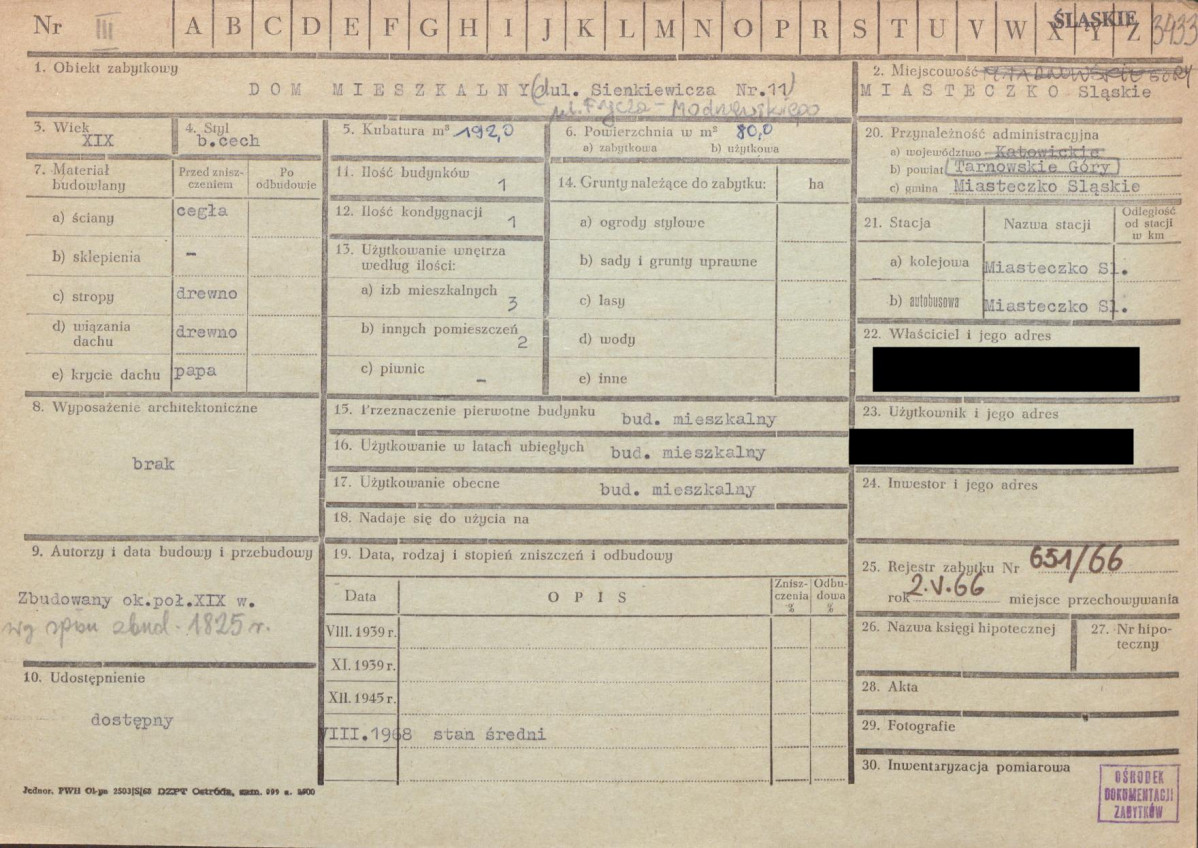 Nr III A B C D E F G H I J K L M N O P R S T U V W X Y Z 3933
ŚLĄSKIE
1. Obiekt zabytkowy
DOM MIESZKALNY (ul. Sienkiewicza Nr.11)
ul. Frycza-Modrzewskiego
2. Miejscowość TARNOWSKIE GÓRY
MIASTECZKO Sląskie
3. Wiek
XIX
4. Styl
b.cech
5. Kubatura m³ 192,0
6. Powierzchnia w m² 80,0
a) zabytkowa b) użytkowa
7. Materiał budowlany
Przed zniszczeniem
Po odbudowie
a) ściany cegła
b) sklepienia –
c) stropy drewno
d) wiązania dachu drewno
e) krycie dachu papa
8. Wyposażenie architektoniczne
brak
9. Autorzy i data budowy i przebudowy
Zbudowany ok.poł.XIX w.
wg spisu zbud. 1825 r.
10. Udostępnienie
dostępny
11. Ilość budynków 1
12. Ilość kondygnacji 1
13. Użytkowanie wnętrza
według ilości:
a) izb mieszkalnych 3
b) innych pomieszczeń 2
c) piwnic –
14. Grunty należące do zabytku: ha
a) ogrody stylowe
b) sady i grunty uprawne
c) lasy
d) wody
e) inne
15. Przeznaczenie pierwotne budynku bud. mieszkalny
16. Użytkowanie w latach ubiegłych bud. mieszkalny
17. Użytkowanie obecne bud. mieszkalny
18. Nadaje się do użycia na
19. Data, rodzaj i stopień zniszczeń i odbudowy
Data OPIS Zniszczenia % Odbudowa %
VIII. 1939 r.
XI. 1939 r.
XII. 1945 r.
VIII.1968 stan średni
20. Przynależność administracyjna
a) województwo Katowickie
b) powiat Tarnowskie Góry
c) gmina Miasteczko Sląskie
21. Stacja Nazwa stacji Odległość od stacji w km
a) kolejowa Miasteczko Sl.
b) autobusowa Miasteczko Sl.
22. Właściciel i jego adres
23. Użytkownik i jego adres
24. Inwestor i jego adres
25. Rejestr zabytku Nr 651/66
rok 2.V.66 miejsce przechowywania
26. Nazwa księgi hipotecznej
27. Nr hipoteczny
28. Akta
29. Fotografie
30. Inwentaryzacja pomiarowa
OŚRODEK
DOKUMENTACJI
ZABYTKÓW
Jednor. PWH Ol-pa 2503/S/68 DZPT Ostróda, zam. 999 n. 3500